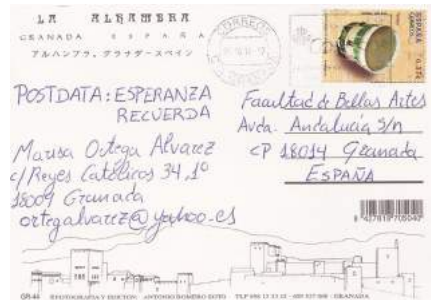 LA ALHAMBRA
GRANADA ESPAÑA
アルハンブラ, グラナダ-スペイン
CORREOS
ESPAÑA
CORREOS
POSTDATA: ESPERANZA
RECUERDA
Marisa Ortega Alvarez
c/Reyes Católicos 34, 1º
18009 Granada
ortegalvarez@yahoo.es
Facultad de Bellas Artes
Avda. Andalucía s/n
CP 18014 Granada
ESPAÑA
GR-44 FOTOGRAFIA Y EDICION ANTONIO ROMERO GRANADA